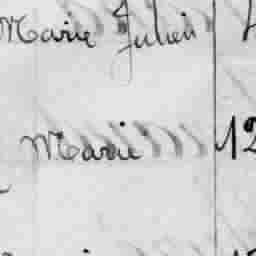 Marie Julien
Marie 12